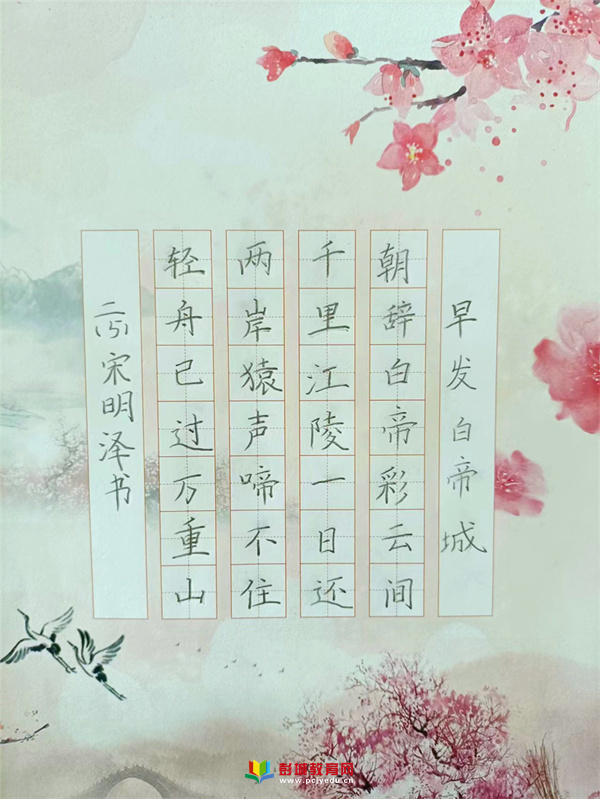 早发白帝城
朝辞白帝彩云间
千里江陵一日还
两岸猿声啼不住
轻舟已过万重山
二(5)宋明泽书
彭城教育网
www.pcjyedu.cn